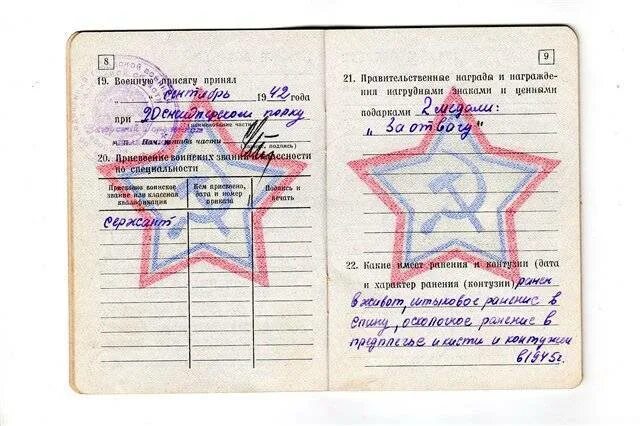 8
19. Военную присягу принял
сентябрь 1942 года
при 20 снайперском полку
(наименование части)
М. П. Начальник части
(подпись)
20. Присвоение воинских званий и классности
по специальности
Присвоено воинское звание или классная квалификация
Кем присвоено, дата и номер приказа
Подпись и печать
сержант
9
21. Правительственные награды и награжде-
ния нагрудными знаками и ценными
подарками 2 медали:
„За отвагу"
22. Какие имеет ранения и контузии (дата
и характер ранения (контузии) ранен
в живот, штыковое ранение в
спину, осколочное ранение в
предплечье и кисти и контужен
в 1945г.